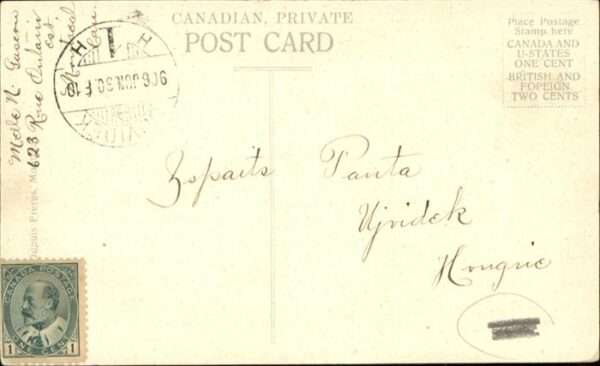 CANADIAN, PRIVATE
POST CARD
Place Postage
Stamp here
CANADA AND
U-STATES
ONE CENT
BRITISH AND
FOREIGN
TWO CENTS
Melle N.
623 Rue Ontario
est.
Montreal
Can.
906 JUN. 30
H I H
Zspaits Panta
Ujvidek
Hongrie
Freres,
CANADA POSTAGE
1 1
ONE CENT